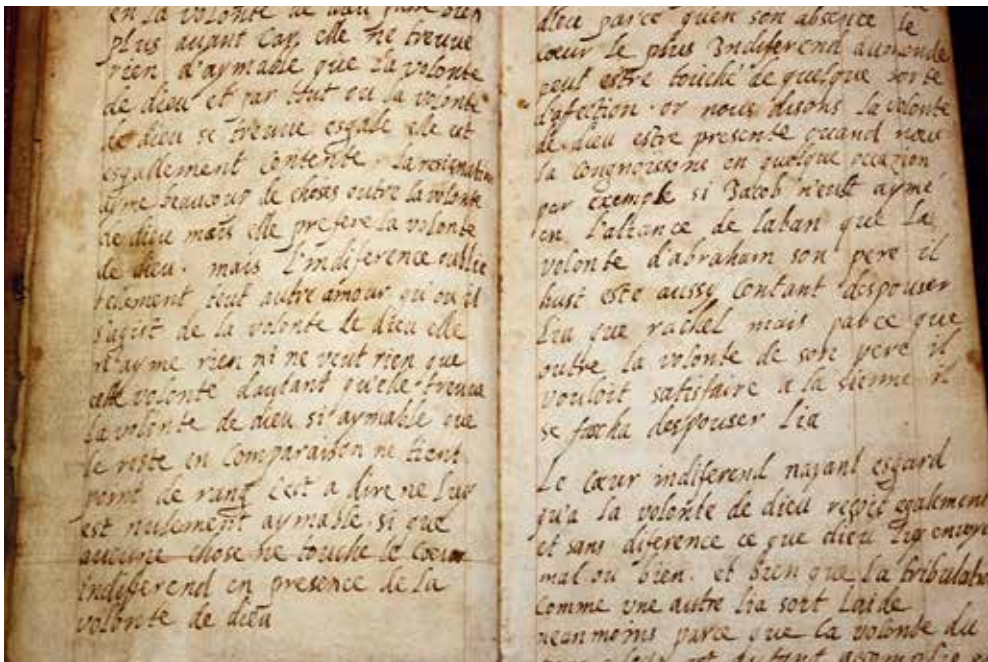 en la volonte de dieu
plus avant Car, elle ne treuve
rien d'aymable que la volonte
de dieu et par tout ou la volonte
de dieu se treuve esgale elle est
esgallement contente. la resignation
ayme beaucoup de choses outre la volonte
de dieu mais elle prefere la volonte
de dieu. mais l'indiference oublie
telement tout autre amour qu'ou il
s'agist de la volonte de dieu elle
n'ayme rien ni ne veut rien que
cette volonte dautant qu'elle treuve
la volonte de dieu si aymable que
le reste en Comparaison ne tient
point de rang c'est a dire ne luy
est nulement aymable. si que
aucune chose ne touche le Coeur
indiferend en presence de la
volonte de dieu
dieu parce quen son absence le
coeur le plus Indiferend aumonde
peut estre touché de quelque sorte
dafection. or nous disons la volonte
de dieu estre presente quand nous
la en quelque occazion
par exemple si Jacob n'eust aymé
en l'aliance de laban que la
volonte d'abraham son pere il
hust este aussy Contant despouser
Lia que rachel mais parce que
outre la volonte de son pere il
vouloit satisfaire a la sienne il
se fascha despouser Lia
Le Coeur indiferend nayant esgard
qu'a la volonte de dieu reçoit egalement
et sans diference ce que dieu luy envoye
mal ou bien. et bien que la tribulation
Comme une autre lia soit Laide
neanmoins parce que la volonte du